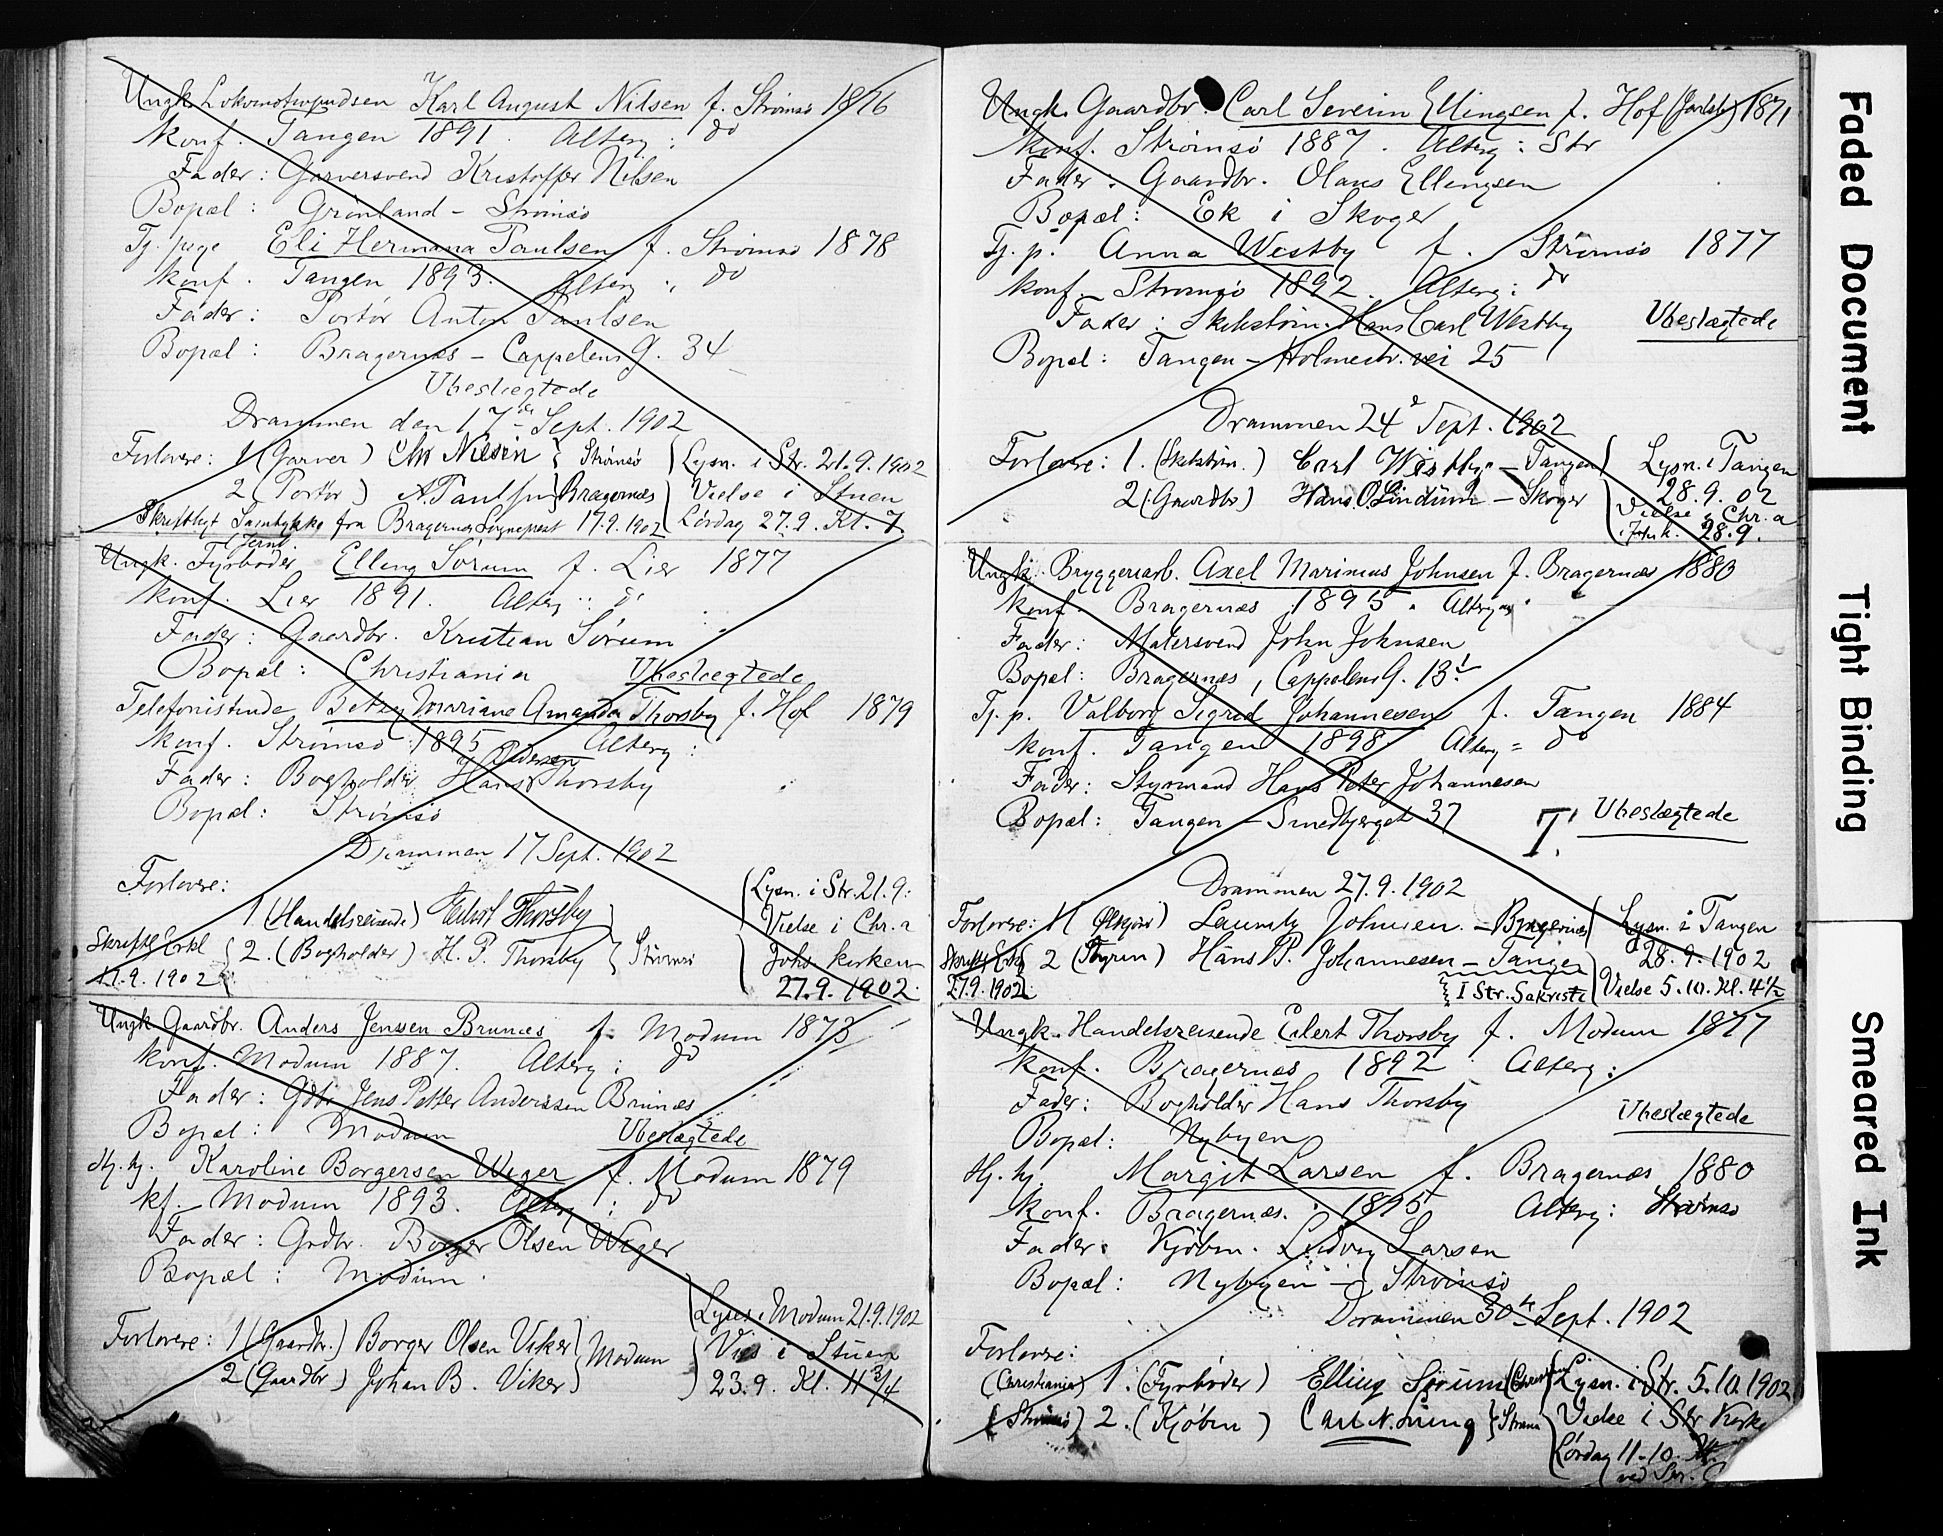 Ungk. Lokomotivpudsen Karl August Nilsen f. Strømsø 1876
konf. Tangen 1891. Alterg.: do
Fader: Garversvend Kristoffer Nilsen
Bopæl: Grønland - Strømsø
Tj. pige Eli Hermana Paulsen f. Strømsø 1878
konf. Tangen 1893. Alterg.: do
Fader: Portør Anton Paulsen
Bopæl: Bragernæs - Cappelens G. 34
Ubeslægtede
Drammen den 17de Sept. 1902
Forlovere: 1 (Garver) Chr Nilsen } Strømsø } Lysn. i Str. 21.9.1902
2 (Portør) A. Paulsen } Bragernæs } Vielse i Stuen
Skriftligt Samtykke fra Bragernes Sognepræst 17.9.1902 Lørdag 27.9. Kl. 7
Ungk. Fyrbøder Elling Sørum f. Lier 1877
konf. Lier 1891. Alterg.: do
Fader: Gaardbr. Kristian Sørum
Bopæl: Christiania Ubeslægtede
Telefonistinde Betzy Mariane Amanda Thorsby f. Hof 1879
konf. Strømsø 1895 Alterg:
Pedersen
Fader: Bogholder Hans Thorsby
Bopæl: Strømsø
Drammen 17 Sept. 1902
Forlovere:
1 (Handelsreisende) Eilert Thorsby
Skriftl Erkl 2. (Bogholder) H. P. Thorsby } Strømsø
17.9.1902
(Lysn. i Str. 21.9.
Vielse i Chr.a
Johs. kirken
27.9.1902.
Ungk Gaardbr. Anders Jenssen Brunæs f. Modum 1873
konf. Modum 1887. Alterg: do
Fader: Gdbr Jens Petter Anderssen Brunæs
Bopæl: Modum Ubeslægtede
Hj. hj. Karoline Borgersen Weger f. Modum 1879
kf. Modum 1893. Alterg: do
Fader: Grdbr. Borger Olsen Weger
Bopæl: Modum.
Lyses i Modum 21.9.1902
Forlovere: 1 (Gaardbr.) Borger Olsen Viker } Modum } Vies i Stuen
2 (Gaardbr) Johan B. Viker } 23.9. Kl. 11 3/4
Ungk. Gaardbr. Carl Severin Ellingsen f. Hof (Jarlsb) 1871
konf. Strømsø 1887. Alterg: Str
Fader: Gaardbr. Olaus Ellingsen
Bopæl: Ek i Skoger
Tj. p. Anna Westby f. Strømsø 1877
konf. Strømsø 1892. Alterg: do
Fader: Skibstøm. Hans Carl Westby Ubeslægtede
Bopæl: Tangen - Holmestr. vei 25
Drammen 24de Sept. 1902
Forlovere: 1. (Skibstøm.) Carl Westby - Tangen ( Lysn. i Tangen
2 (Gaardbr) Hans O. Lindum - Skoger ( 28.9.02
Vielse i Chr.a
28.9.
Ungk. Bryggeriarb. Axel Marinius Johnsen f. Bragernæs 1880
konf. Bragernæs 1895. Alterg:
Fader: Malersvend John Johnsen
Bopæl: Bragernæs, Cappelens G. 13
Tj. p. Valborg Sigrid Johannesen f. Tangen 1884
konf. Tangen 1898 Alterg = do
Fader: Styrmand Hans Peter Johannesen
Bopæl: Tangen - Smedbjerget 37 T. Ubeslægtede
Drammen 27.9.1902
Forlovere: 1 Lauritz Johnsen. - Bragernæs ( Lysn. i Tangen
2 (Styrm) Hans P. Johannesen - Tangen 28.9.1902
27.9.1902. I Str. Sakristi Vielse 5.10. Kl. 4 1/2
Ungk. Handelsreisende Eilert Thorsby f. Modum 1877
konf. Bragernæs 1892 Alterg:
Fader: Bogholder Hans Thorsby
Ubeslægtede
Bopæl: Nybyen
Hj. hj. Margit Larsen f. Bragernæs 1880
konf. Bragernæs. 1895 Alterg: Strømsø
Fader: Kjøbm. Ludvig Larsen
Bopæl: Nybyen - Strømsø
Drammen 30te Sept. 1902
Forlovere:
(Christiania) 1. (Fyrbøder) Elling Sørum Lysn. i Str. 5.10.1902
(Strømsø) 2. (Kjøbm) Carl N. Vielse i Str Kirke
Lørdag 11.10.
Faded Document
Tight Binding
Smeared Ink